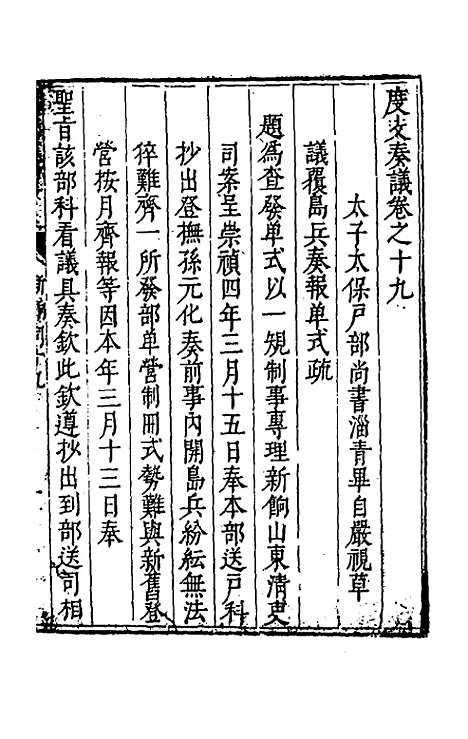 度支奏議卷之十九
太子太保戸部尚書淄青畢自嚴視草
議覆島兵奏報单式疏
題爲查發单式以一規制事專理新餉山東清吏
司案呈崇禎四年三月十五日奉本部送戸科
抄出登撫孫元化奏前事內開島兵紛紜無法
猝難齊一所發部单營制冊式勢難與新舊登
營按月齊報等因本年三月十三日奉
聖旨該部科看議具奏欽此欽遵抄出到部送司相